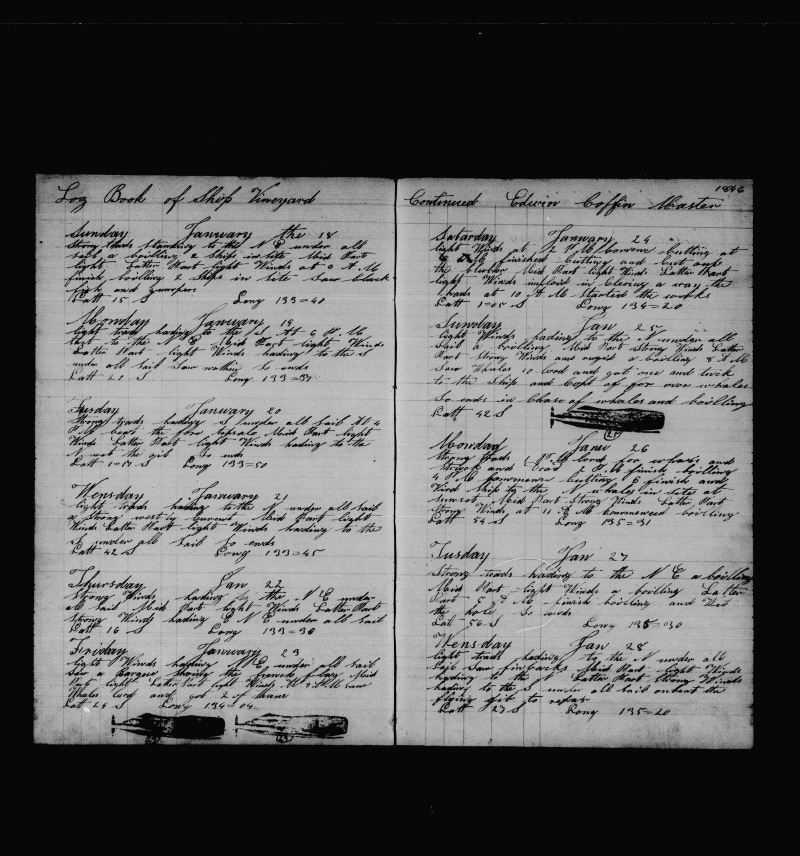 Log Book of Ship Vineyard
Sunday January the 18
Strong trads standing to the N E under all
sail a boiling 2 Ships in site Mid Part
light Latter Part light Winds at A M
finish boiling 2 Ships in site Saw black
fish and
Latt 15 S Long 133=40
Monday January 19
light trads heading to the S At 6 P. M.
to the N E Mid Part light Winds
Latter Part light Winds heading to the S
under all sail Saw nothin So ends
Latt 21 S Long 133=37
Tusday January 20
Strong trads heading S under all sail At 4
P M the fore topsale Mid Part light
Winds Latter Part light Winds heading to the
N the gib So ends
Latt 1=17 S Long 133=50
Wensday January 21
light trads heading to the N under all sail
a Strong current Mid Part light
Winds Latter Part light Winds heading to the
S under all sail So ends
Latt 42 S Long 133=45
Thursday Jan 22
Strong Winds heading to the N E under
all sail Mid Part light Winds Latter Part
Strong Winds heading E N E under all sail
Latt 16 S Long 133=30
Friday January 23
light Winds heading N E under all sail
Saw a Barque Showing the French flag Mid
Part light Latter Part light Winds At 9 A M saw
Whales lord and got 2 of them
Lat 24 S Long 134=04
1846
Continued Edwin Coffin Master
Saturday January 24
light Winds at P M Comence cutting at
6 finished Cutting and
the blubber Mid Part light Winds Latter Part
light Winds imploid in Clering a way the
heads at 10 A M Started the works
Latt 1=05 S Long 134=20
Sunday Jan 25
light Winds heading to the N under all
sail a boilling Mid Part Strong Winds Latter
Part Strong Winds and a boilling 8 A M
Saw Whales 10 lord and got one and took
to the Ship and of for more whales
So ends in Chase of whales and boilling
Latt 42 S
Monday Janu 26
Strong trads P M lord for whales and
Struck and P M finish boilling
4 P M commence cutting 6 finish and
Ship to the N whales in site at
sunset Mid Part Strong Winds Latter Part
Strong Winds at 11 A M Commenced boilling
Latt 54 S Long 135=31
Tusday Jan 27
Strong trads heading to the N E a boilling
Mid Part light Winds a boilling Latter
Part 8 A M finish boilling and Wet
the hole So ends
Lat 56 S Long 135=30
Wensday Jan 28
light trads heading to the N under all
Sail Saw Mid Part light Winds
heading to the N Latter Part Strong Winds
heading to the S under all sail unbent the
flying gib to repar
Latt 27 S Long 135=20